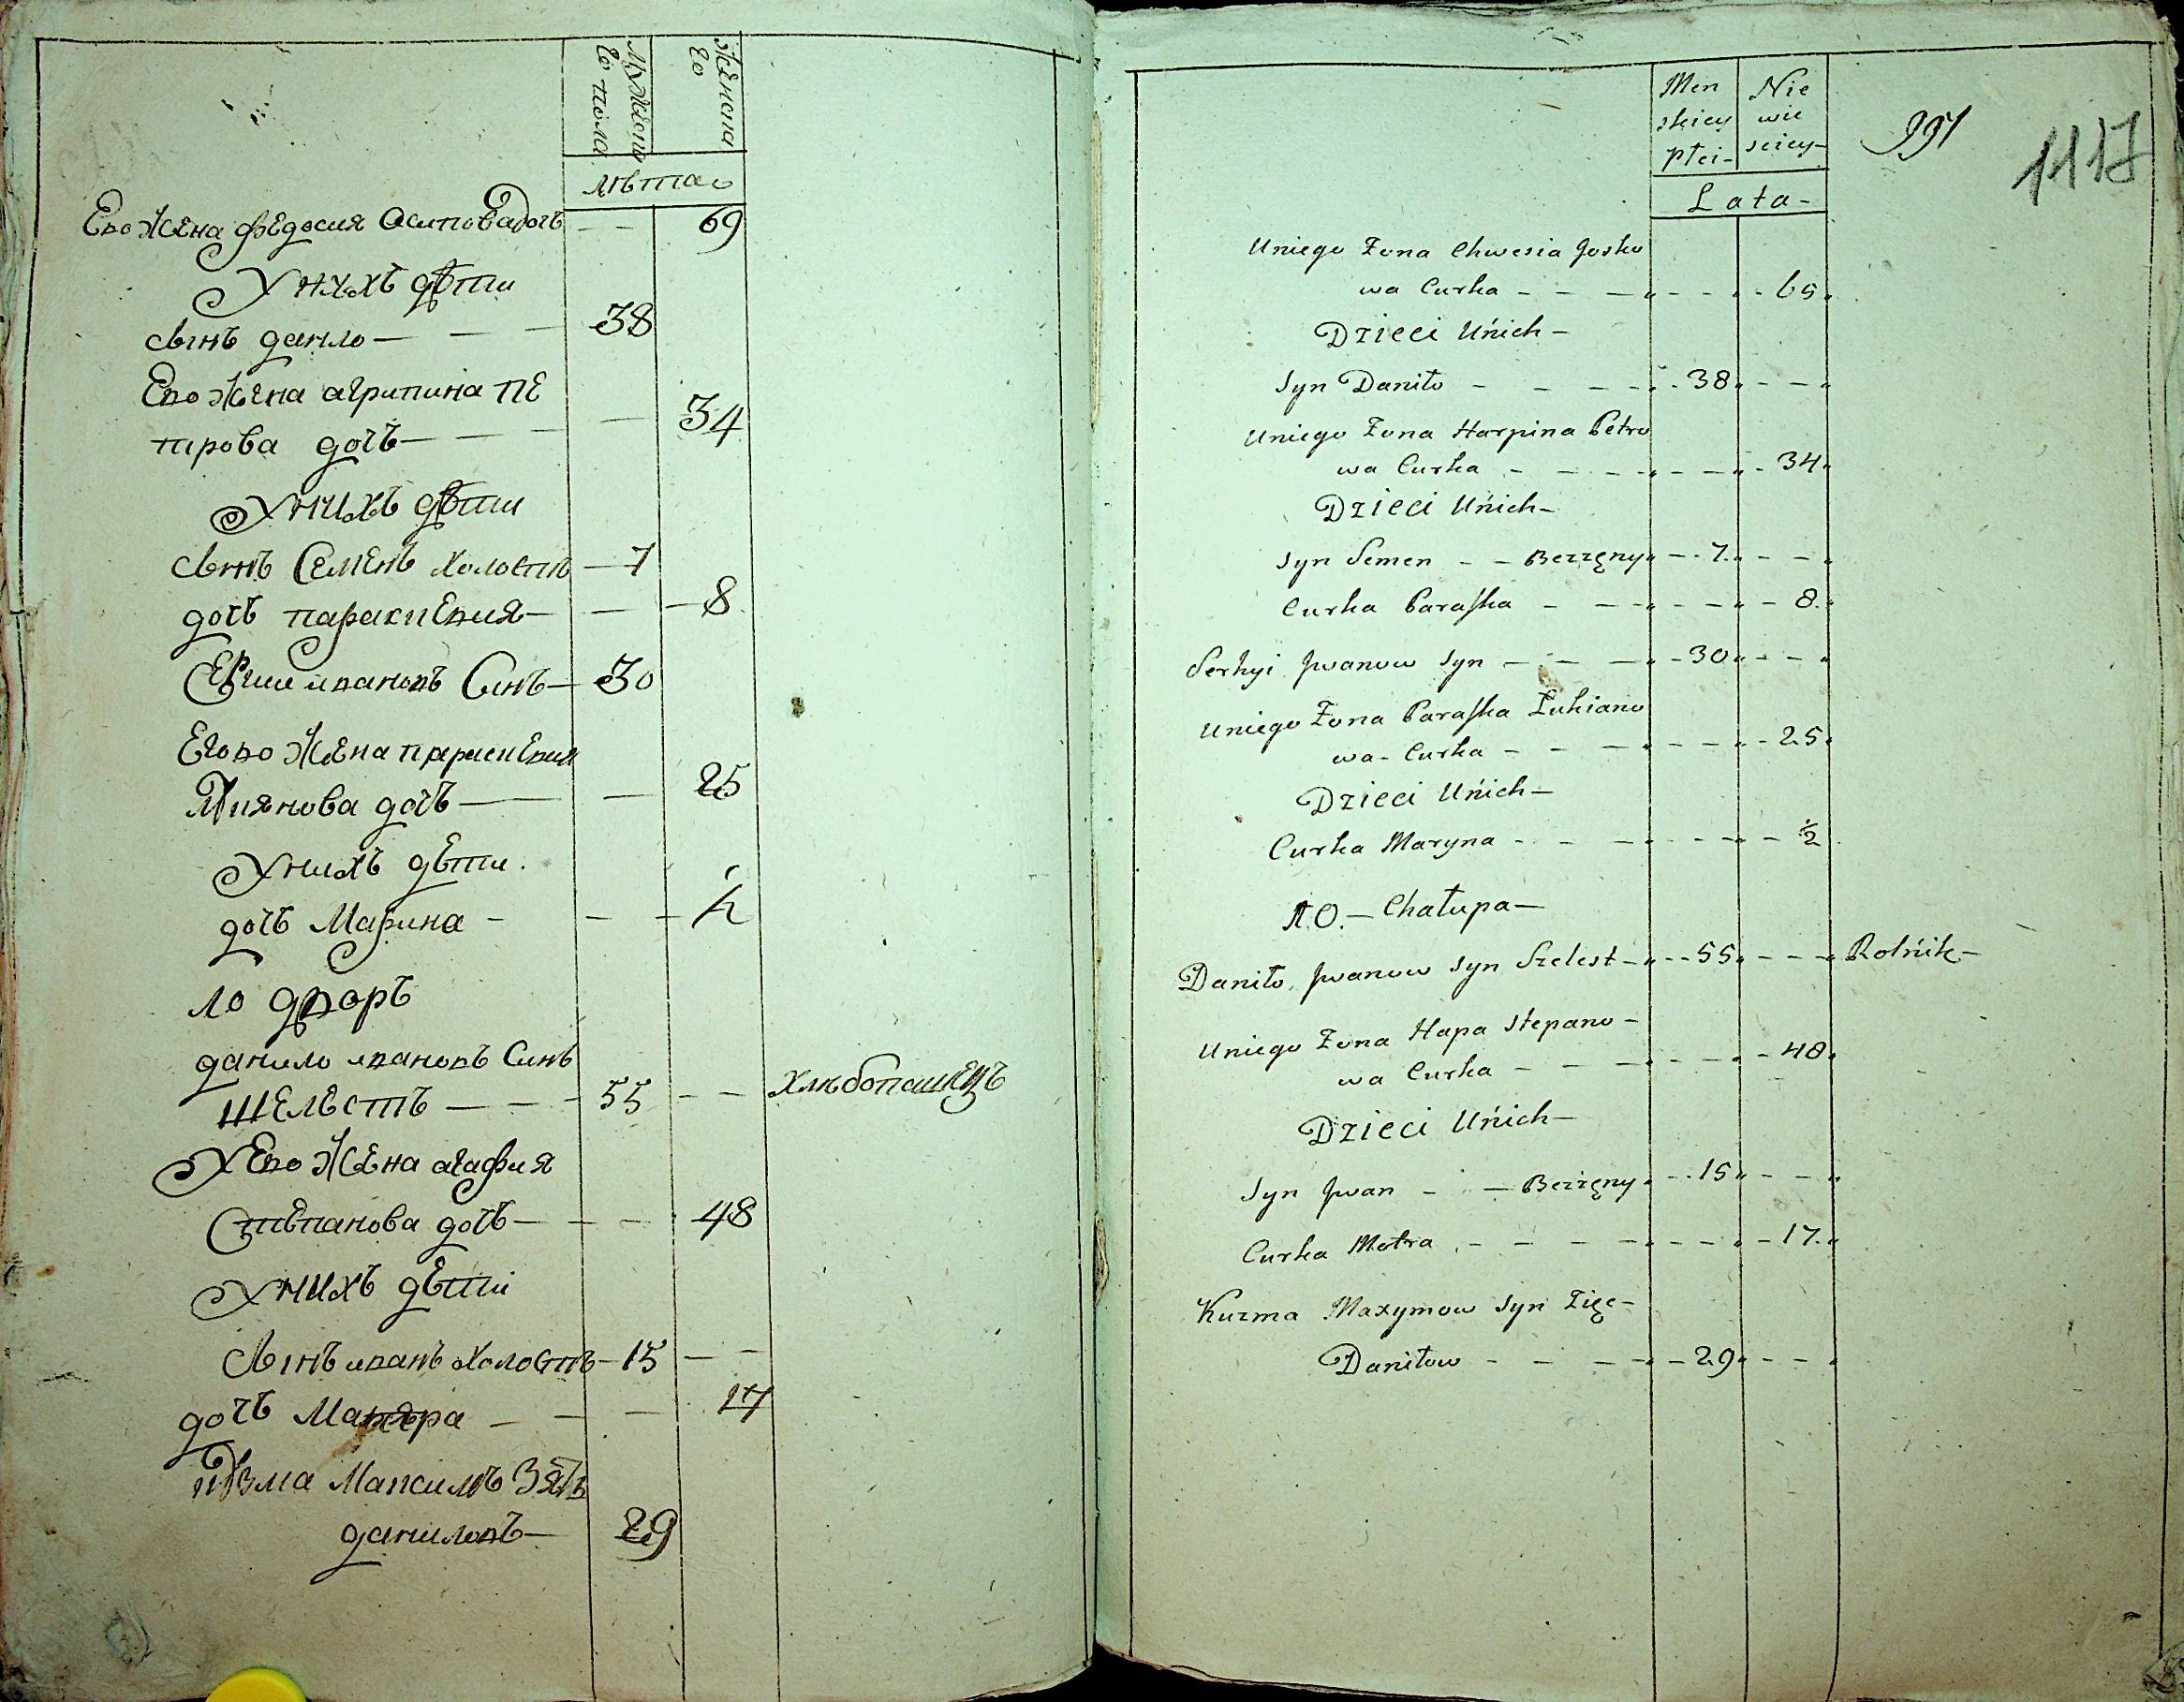 Мужеска
го пола
Женска
го
лѣта
Ево Жена федосия Осиповадочь — — 69
У нихъ дѣти
сынъ данло — — — 38
Ево Жена агрипина пе
трова дочь — — — — 34
У нихъ дѣти
сынъ Семенъ холостъ — 7
дочь параскпевия — — — 8
Сергии ивановъ Синъ — 30
Егово Жена праскпевия
Лукиянова дочь — — 25
У нихъ дѣти
дочь Марина — — — 1/2
ло дворъ
данило ивановъ Синъ
шелестъ — — — 55 — — хлѣбопашецъ
У Ево Жена агафия
Степанова дочь — — — 48
У нихъ дѣти
сынъ иванъ холостъ — 15 — —
дочь Матра — — — 17
кузма Максимъ Зять
даниловъ — 29
Men
skiey
płci —
Nie
wie
sciey —
991
1117
Lata —
Uniego Żona Chwesia Josko
wa Curka — — — — — 65
Dzieci Unich —
Syn Daniło — — — — 38 — —
Uniego Żona Harpina Petro
wa Curka — — — — — — 34
Dzieci Unich —
Syn Semen — — Bezżęny — 7 — —
Curka Paraska — — — — — 8
Serhyi Jwanow Syn — — — 30 — —
Uniego Żona Paraska Łukiano
wa — Curka — — — — — 25
Dzieci Unich —
Curka Maryna — — — — — — 1/2
Л.О. — Chałupa —
Daniło Jwanow Syn Szelest — 55 — — Rolnik —
Uniego Żona Hapa Stepano —
wa Curka — — — — — 48
Dzieci Unich —
Syn Jwan — — Bezżęny — 15 — —
Curka Motra — — — — — — 17
Kuzma Maxymow Syn Zięc —
Daniłow — — — — 29 — —